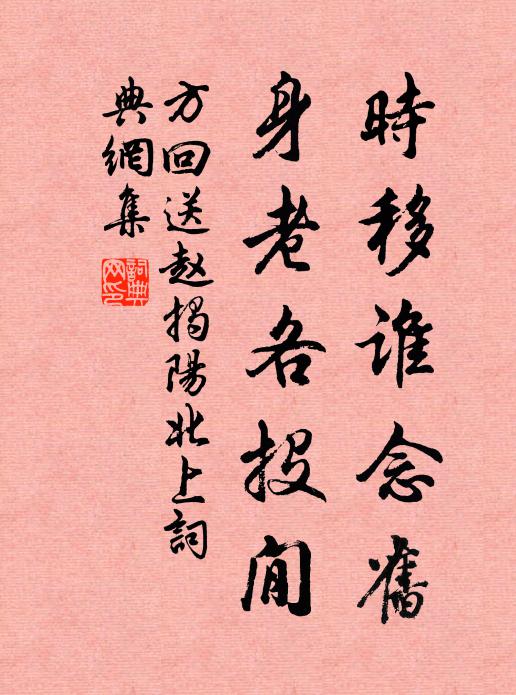 時移谁念舊
身老各投閒
方回送赵揭陽北上詞
典網集
詞典
网印